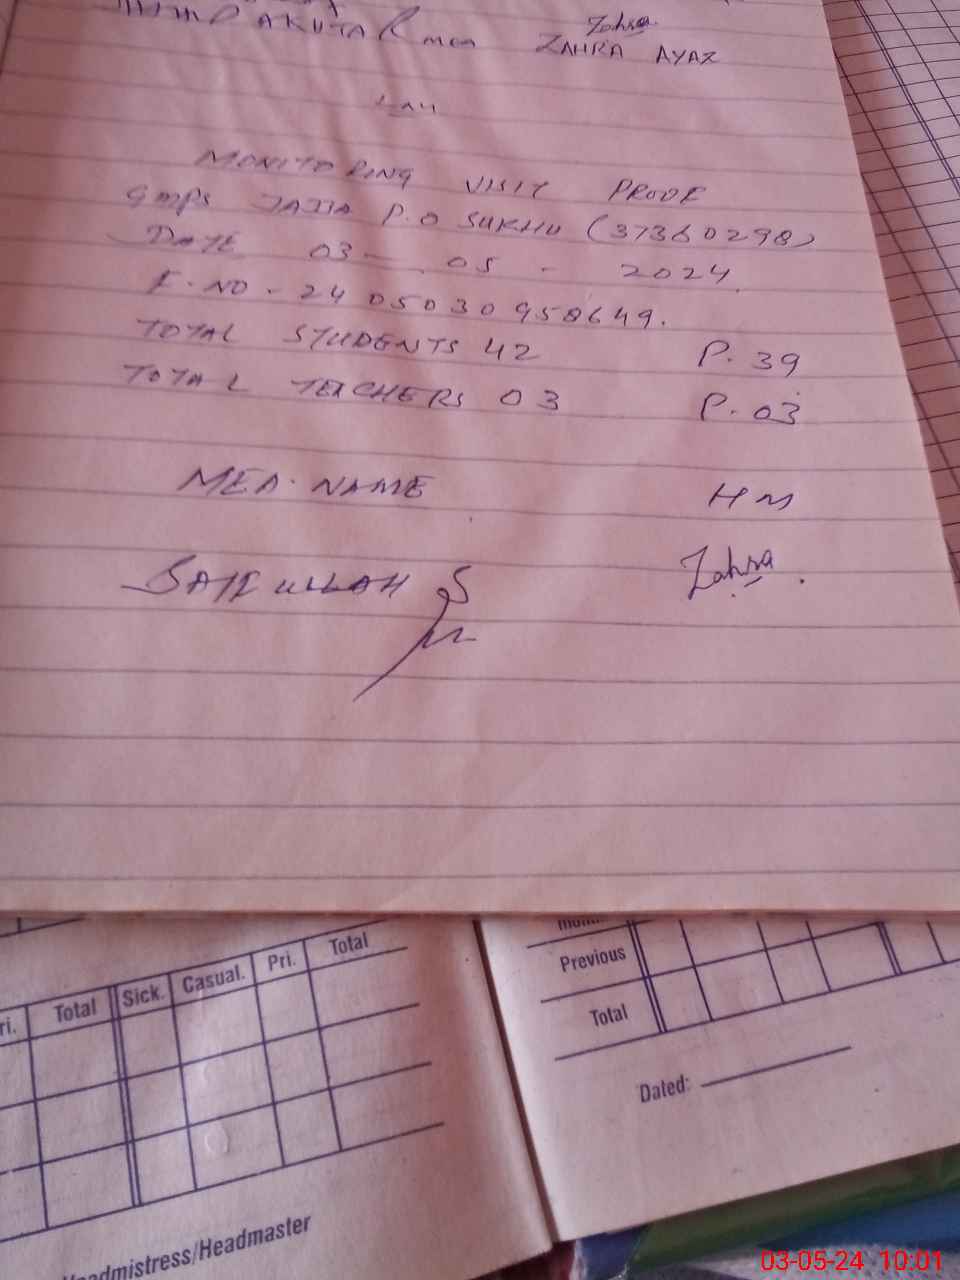 Zahra
MEA ZAHRA AYAZ
MONITORING VISIT PROOF
GMPS JAJIA P.O SUKHU (37360298)
DATE 03 - 05 - 2024
F.NO - 2405030958649.
TOTAL STUDENTS 42 P. 39
TOTAL TEACHERS 03 P. 03
MEA. NAME HM
SAIFULLAH Zahra.
ri. Total Sick. Casual. Pri. Total
Previous
Total
Dated:
admistress/Headmaster
03-05-24 10:01